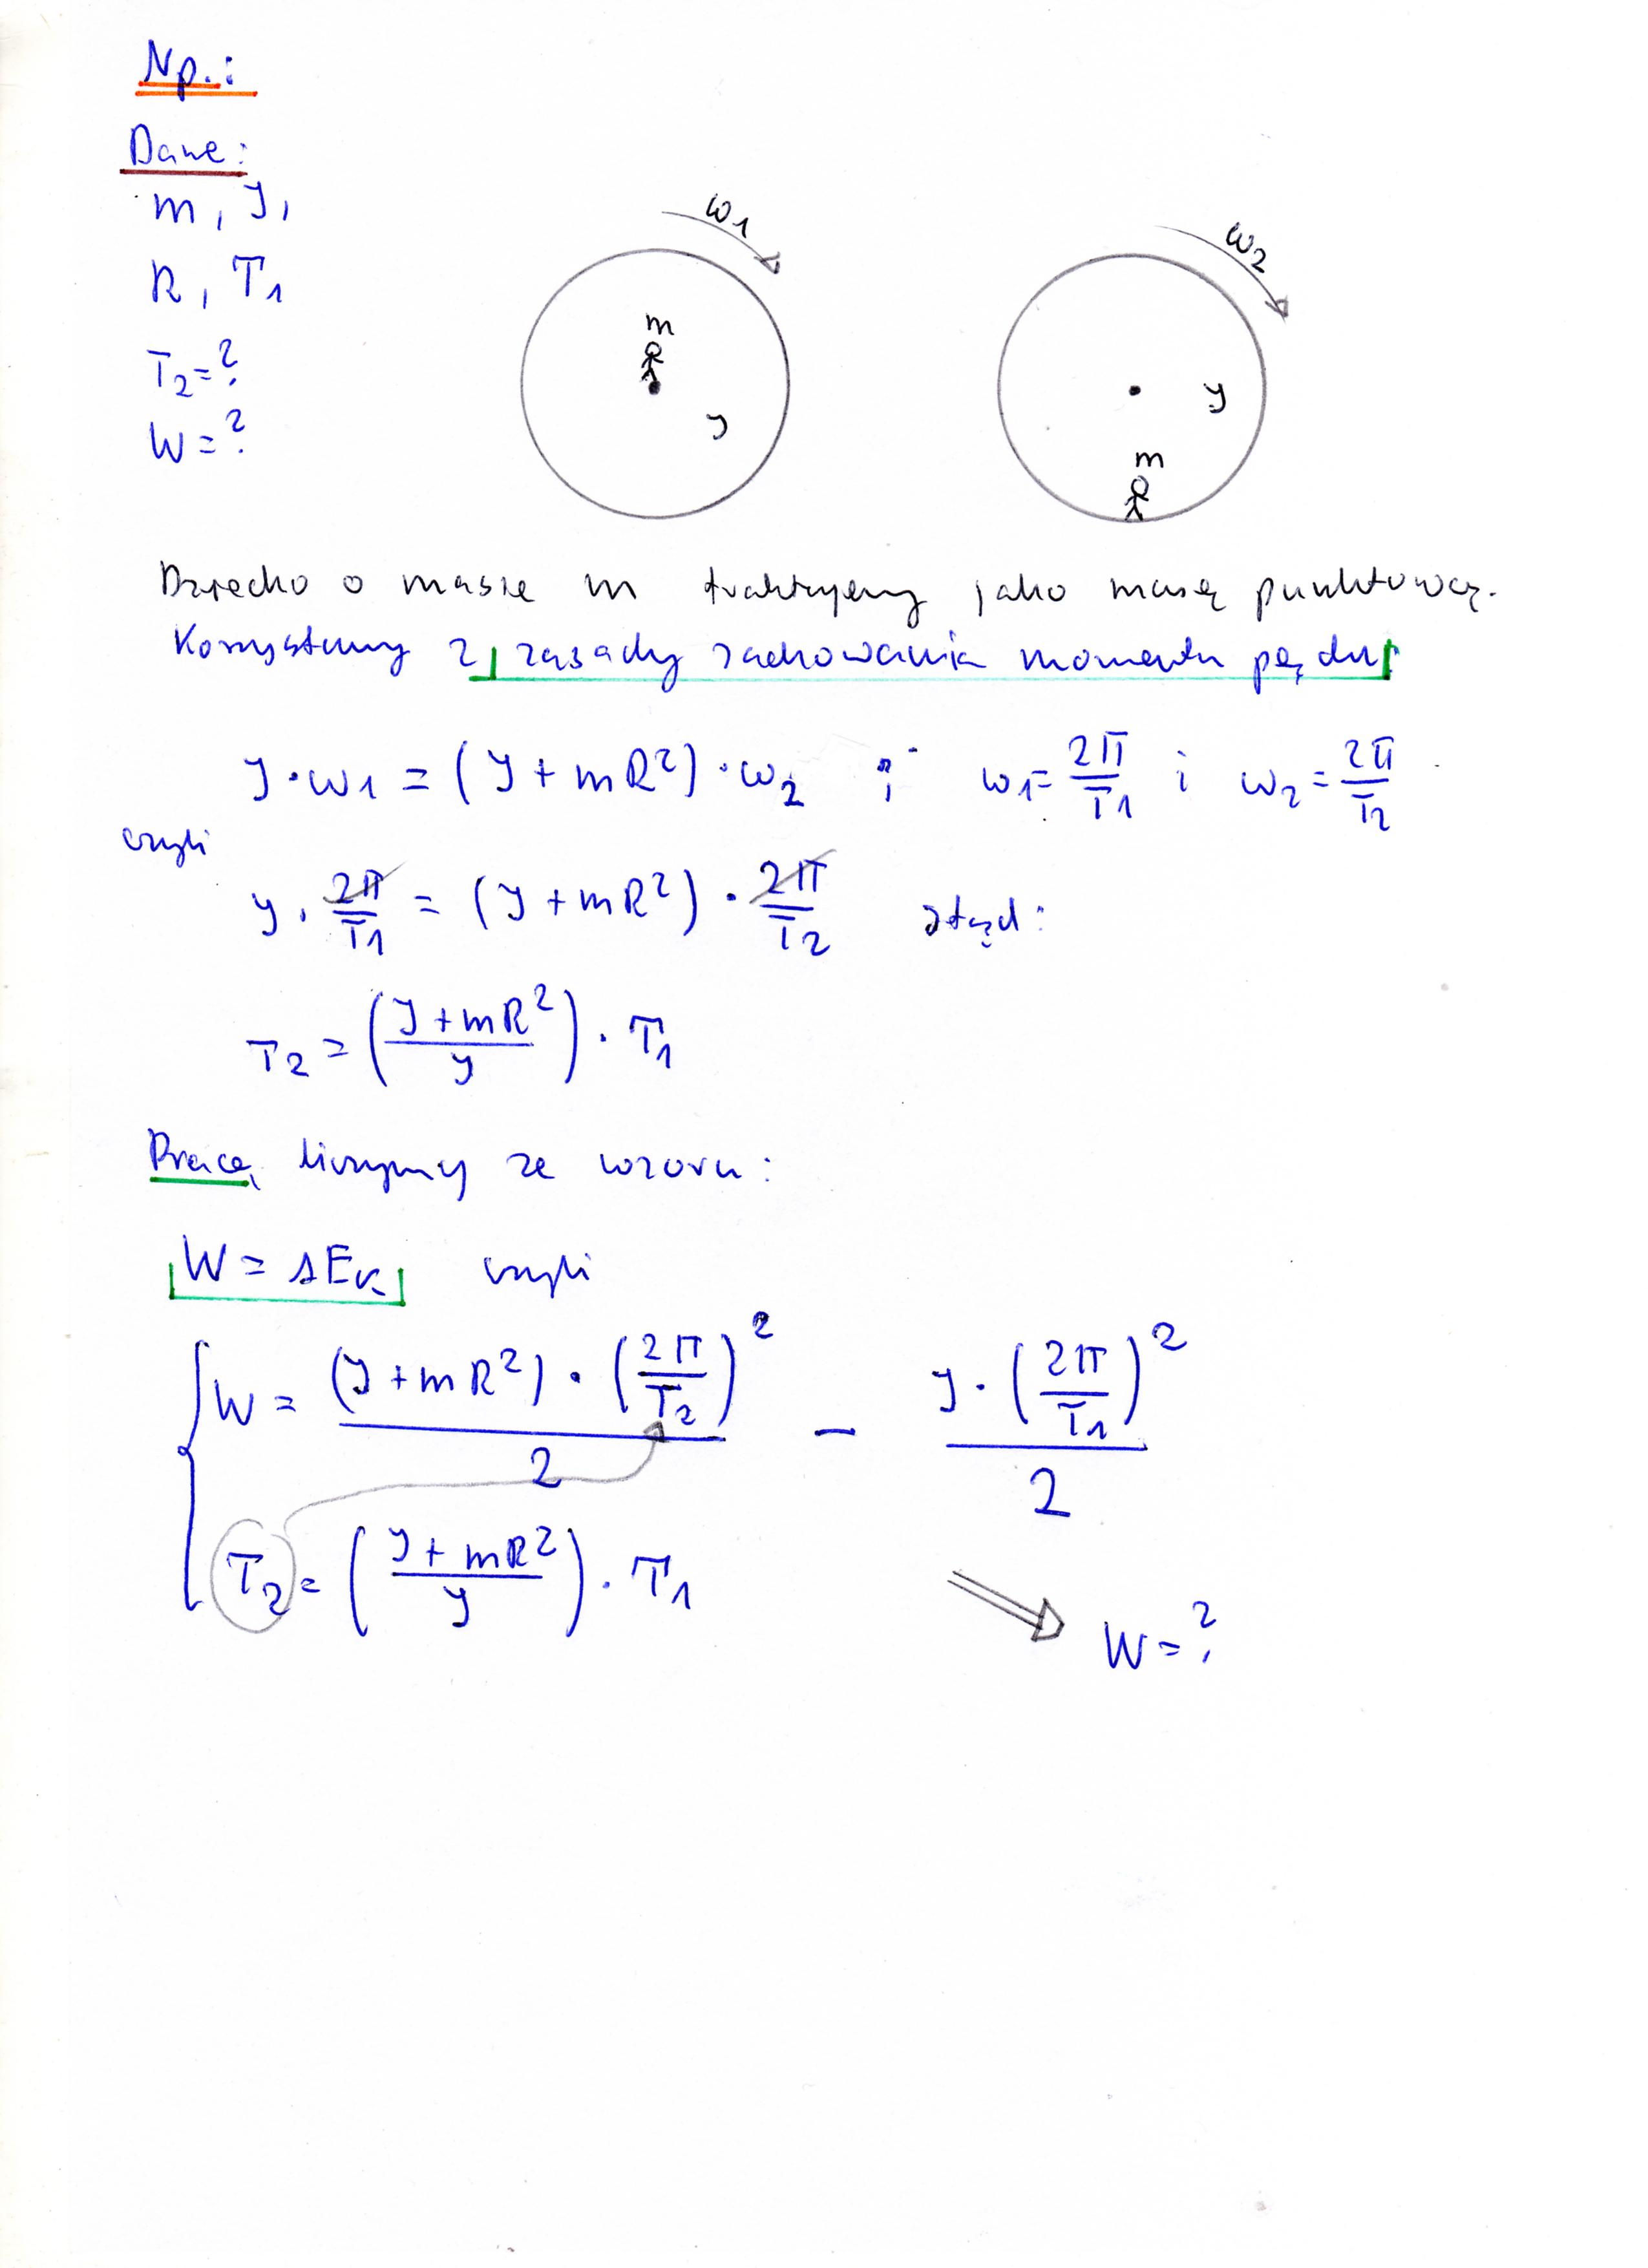 Np.:
Dane:
m, J,
R, T1
T2=?
W=?
ω1
m
J
ω2
J
m
Dziecko o masie m traktujemy jako masę punktową.
Korzystamy z zasady zachowania momentu pędu
J·ω1 = (J + mR²)·ω2 ; ω1 = 2π/T1 i ω2 = 2π/T2
czyli
J · 2π/T1 = (J + mR²) · 2π/T2 stąd:
T2 = ((J + mR²)/J) · T1
Pracę liczymy ze wzoru:
W = ΔEK czyli
W = (J + mR²) · (2π/T2)² / 2 − J · (2π/T1)² / 2
T2 = ((J + mR²)/J) · T1
⇒ W = ?